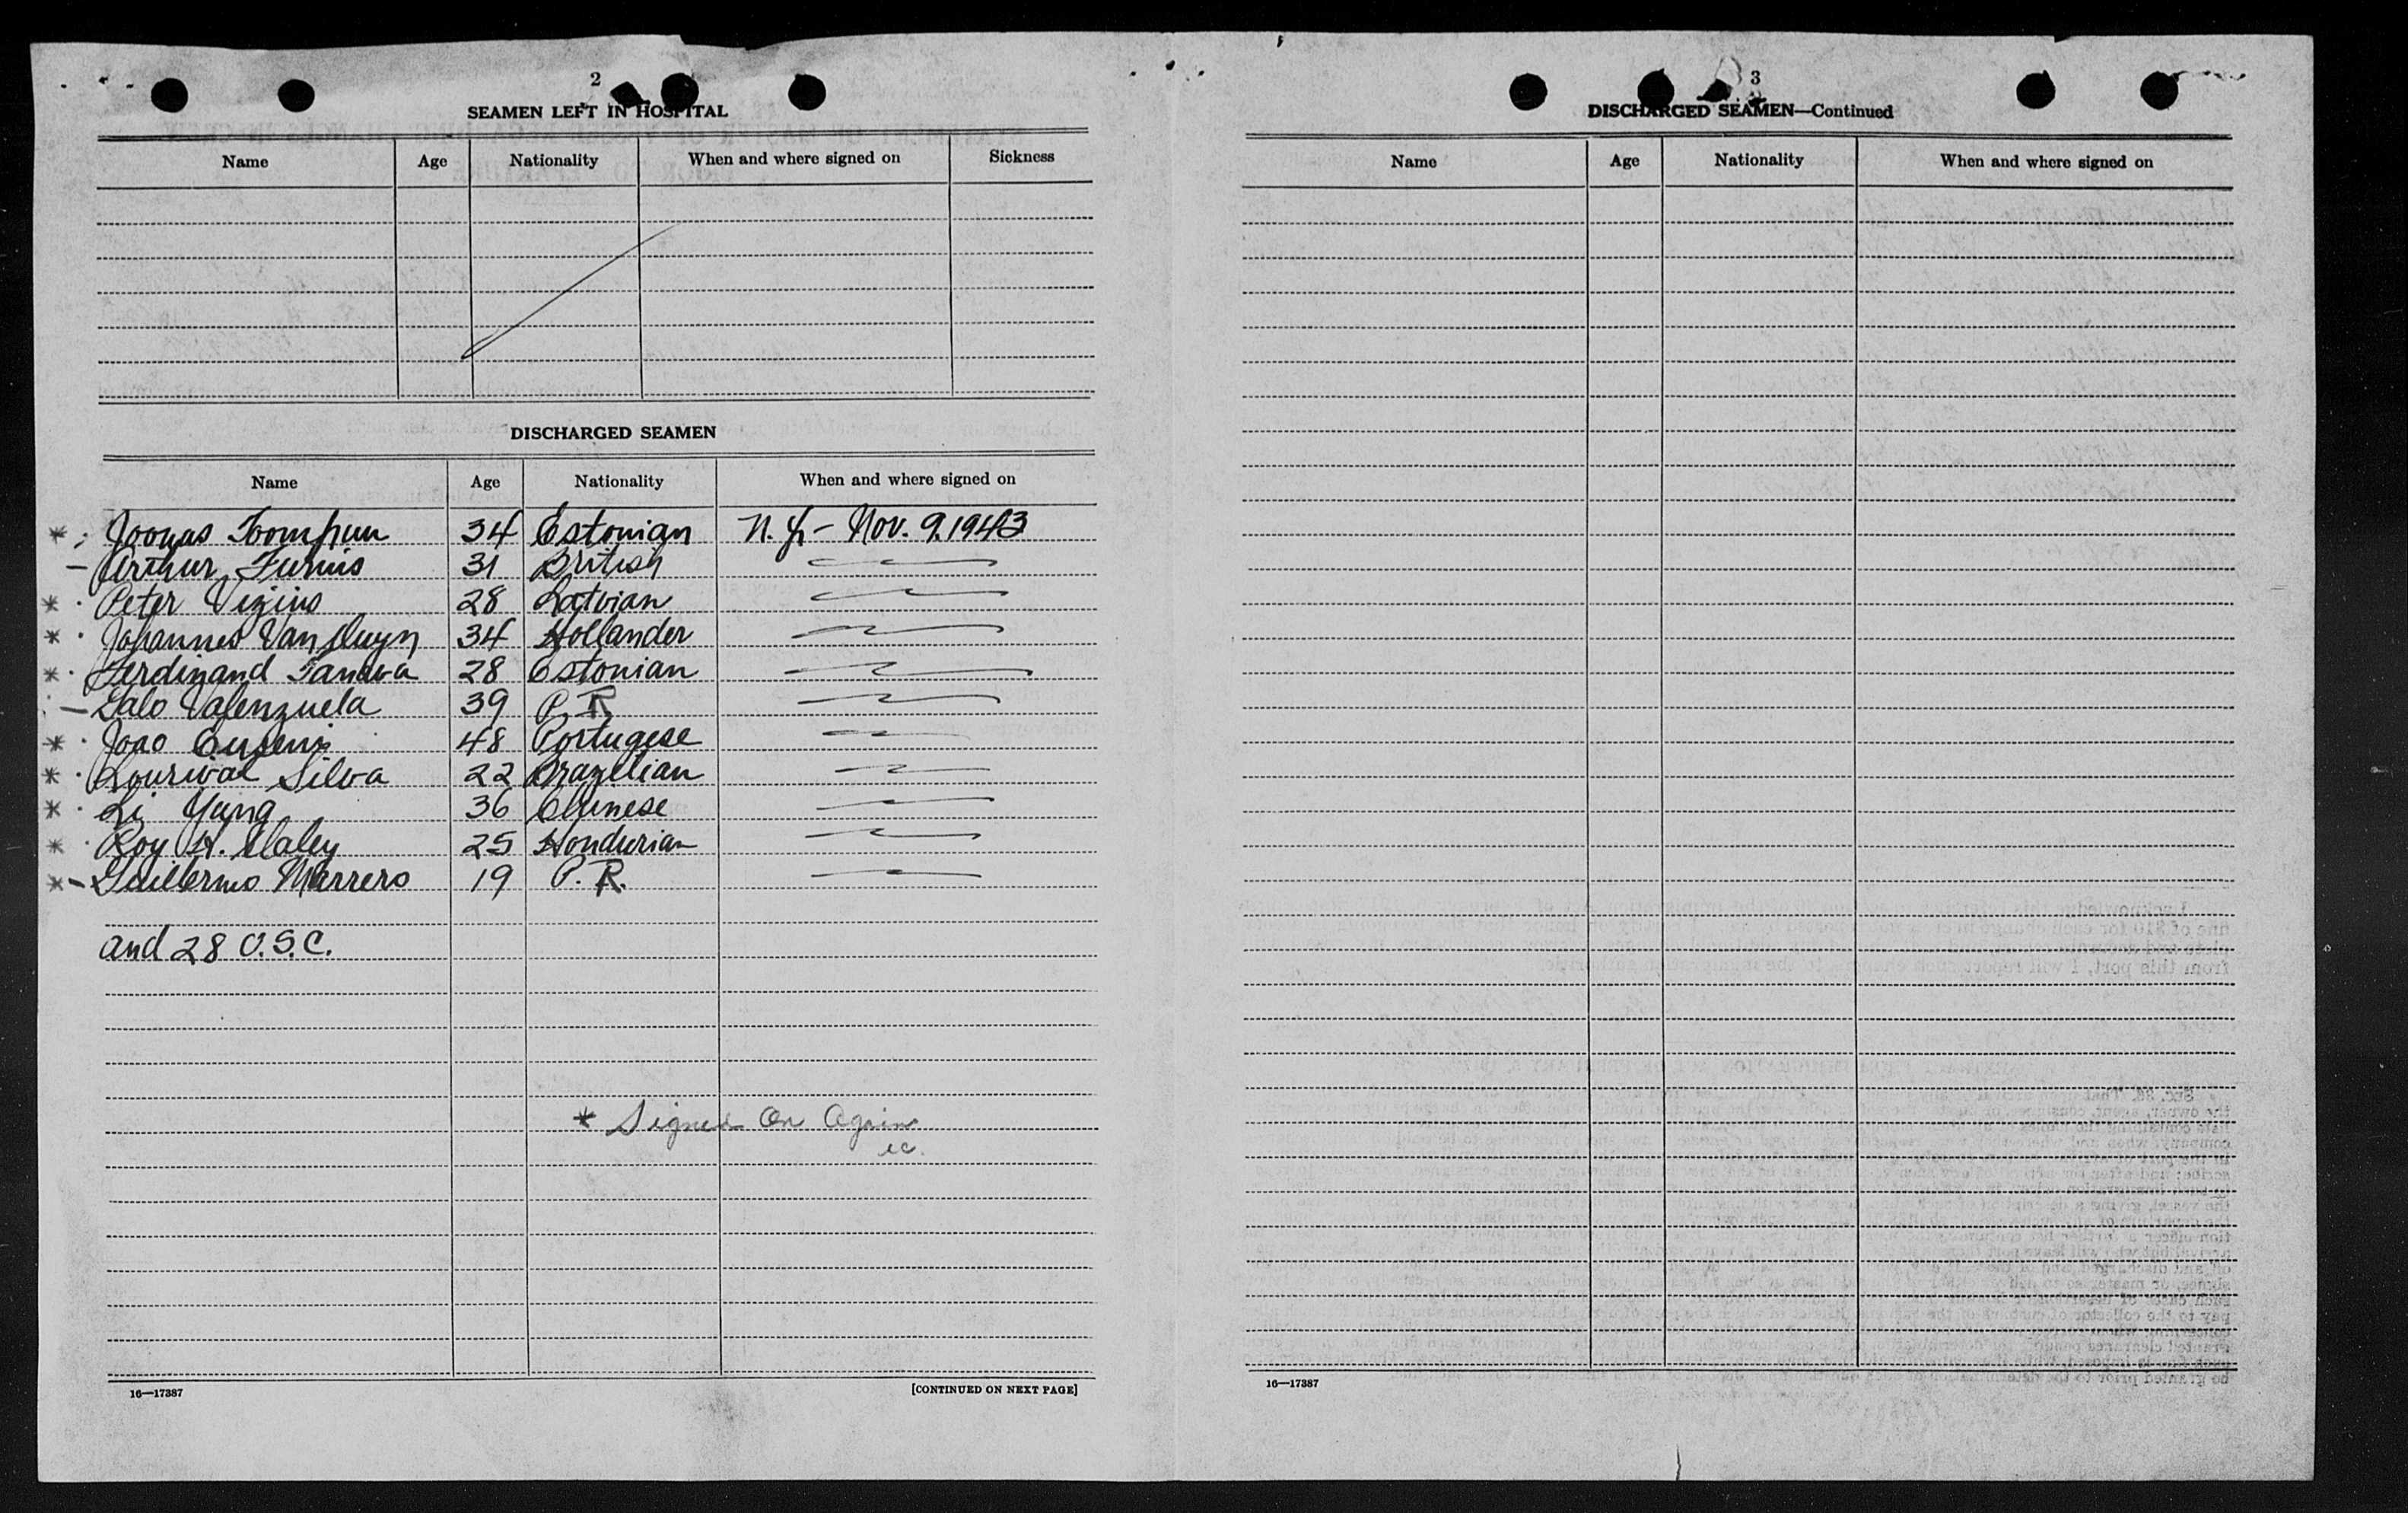 2
SEAMEN LEFT IN HOSPITAL
Name Age Nationality When and where signed on Sickness
DISCHARGED SEAMEN
Name Age Nationality When and where signed on
* Joonas Toompuu 34 Estonian N.Y. - Nov. 9, 1943
- Arthur Furnis 31 British
* Peter Vizins 28 Latvian
* Johannes Van 34 Hollander
* Ferdinand 28 Estonian
- Galo Valenzuela 39 P.R.
* Joao Eugenio 48 Portugese
* Lourival Silva 22 Brazilian
* Li Yung 36 Chinese
* Roy H. Haley 25 Hondurian
* - Guillermo Marrero 19 P.R.
and 28 U.S.C.
* Signed On Again
ec.
16—17387 [CONTINUED ON NEXT PAGE]
3
DISCHARGED SEAMEN—Continued
Name Age Nationality When and where signed on
16—17387